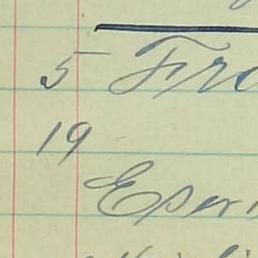 5 Fro
19
Eper